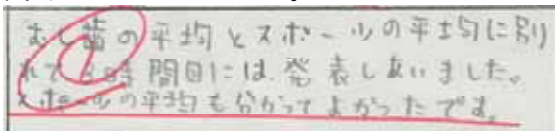 むし歯の平均とスポーツの平均に別
れて6時間目には、発表しあいました。
スポーツの平均も分かってよかったです。